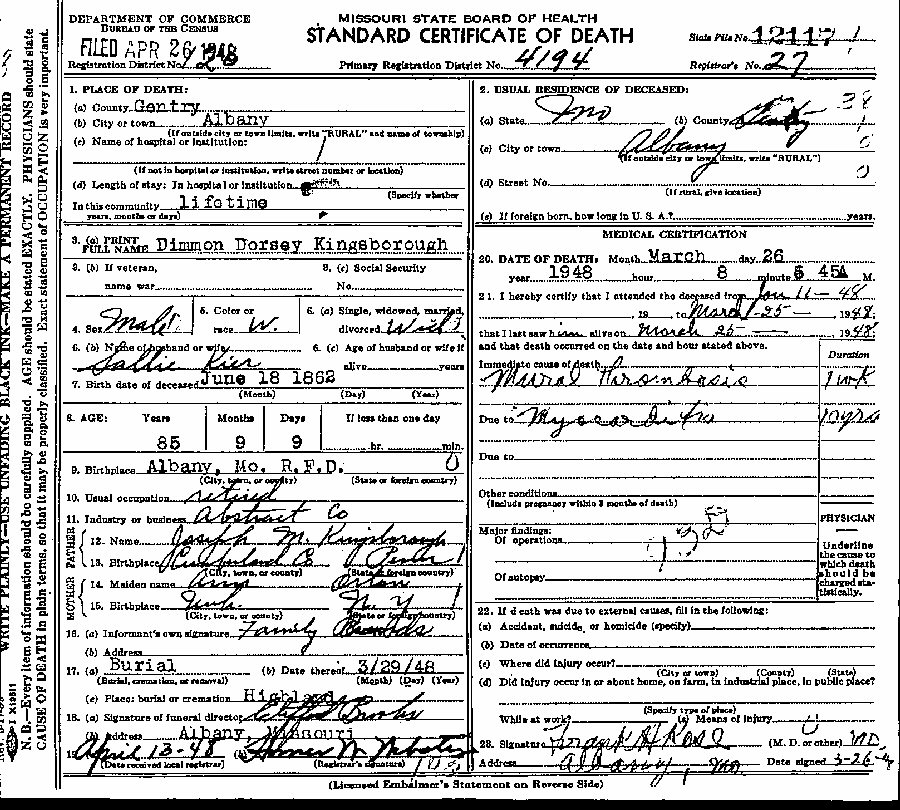 DEPARTMENT OF COMMERCE
BUREAU OF THE CENSUS
MISSOURI STATE BOARD OF HEALTH
STANDARD CERTIFICATE OF DEATH
FILED APR 26 1948
State File No. 12117
Registration District No.
Primary Registration District No. 4194
Registrar's No. 27
1. PLACE OF DEATH:
(a) County Gentry
(b) City or town Albany
(If outside city or town limits, write "RURAL" and name of township)
(c) Name of hospital or institution:
(If not in hospital or institution, write street number or location)
(d) Length of stay: In hospital or institution
(Specify whether
In this community lifetime
years, months or days)
3. (a) PRINT FULL NAME Dimmon Dorsey Kingsborough
3. (b) If veteran,
name war
3. (c) Social Security
No.
4. Sex Male
5. Color or race W.
6. (a) Single, widowed, married, divorced Wid
6. (b) Name of husband or wife
Sallie Kier
6. (c) Age of husband or wife if
alive years
7. Birth date of deceased June 18 1862
(Month) (Day) (Year)
8. AGE: Years Months Days If less than one day
85 9 9 hr. min.
9. Birthplace Albany, Mo. R.F.D.
(City, town, or county) (State or foreign country)
10. Usual occupation retired
11. Industry or business Abstract Co
FATHER
12. Name Joseph M. Kingsborough
13. Birthplace Cumberland Co Penn
(City, town, or county) (State or foreign country)
MOTHER
14. Maiden name Anna
15. Birthplace Unk. N.Y.
(City, town, or county) (State or foreign country)
16. (a) Informant's own signature Family
(b) Address
17. (a) Burial (b) Date thereof 3/29/48
(Burial, cremation, or removal) (Month) (Day) (Year)
(c) Place: burial or cremation Highland
18. (a) Signature of funeral director Clifford Brooks
(b) Address Albany, Missouri
19. April 13-48 (b) Homer M. Webster
(Date received local registrar) (Registrar's signature)
2. USUAL RESIDENCE OF DECEASED:
(a) State Mo (b) County Gentry 38
(c) City or town Albany
(If outside city or town limits, write "RURAL")
(d) Street No.
(If rural, give location)
(e) If foreign born, how long in U. S. A.? years.
MEDICAL CERTIFICATION
20. DATE OF DEATH: Month March day 26
year 1948 hour 8 minute 45A M.
21. I hereby certify that I attended the deceased from Jan 11-48
, 19 to March-25- 1948
that I last saw him alive on March 25- 1948
and that death occurred on the date and hour stated above.
Duration
Immediate cause of death
Mural Thrombosis 1 wk
Due to Myocarditis 10 yrs
Due to
Other conditions
(Include pregnancy within 3 months of death)
PHYSICIAN
Major findings:
Of operations
Of autopsy
Underline the cause to which death should be charged statistically.
22. If death was due to external causes, fill in the following:
(a) Accident, suicide, or homicide (specify)
(b) Date of occurrence
(c) Where did injury occur?
(City or town) (County) (State)
(d) Did injury occur in or about home, on farm, in industrial place, in public place?
(Specify type of place)
While at work? (e) Means of injury
23. Signature Frank H Rose (M. D. or other) MD
Address Albany, Mo Date signed 3-26-
(Licensed Embalmer's Statement on Reverse Side)
WRITE PLAINLY—USE UNFADING BLACK INK—MAKE A PERMANENT RECORD
N. B.—Every item of information should be carefully supplied. AGE should be stated EXACTLY. PHYSICIANS should state
CAUSE OF DEATH in plain terms, so that it may be properly classified. Exact statement of OCCUPATION is very important.